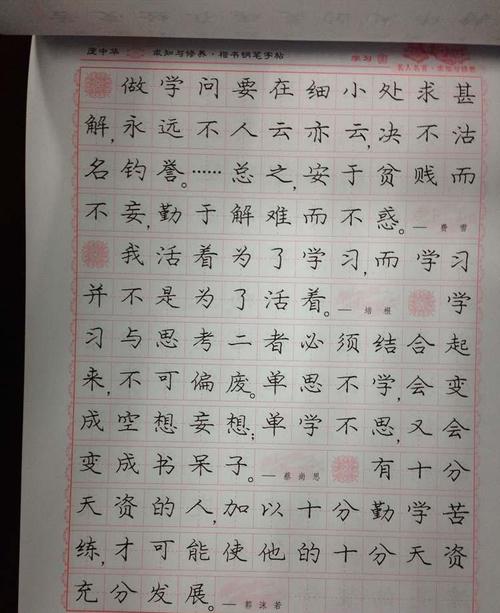 庞中华 求知与修养·楷书钢笔字帖 学习 名人名言·求知与修养
做学问要在细小处求甚
解,永远不人云亦云,决不沽
名钓誉。……总之,安于贫贱而
不妄,勤于解难而不惑。— 费雷
我活着为了学习,而学习
并不是为了活着。— 培根 学
习与思考二者必须结合起
来,不可偏废。单思不学,会变
成空想妄想;单学不思,又会
变成书呆子。— 蔡尚思 有十分
天资的人,加以十分勤学苦
练,才可能使他的十分天资
充分发展。— 郭沫若